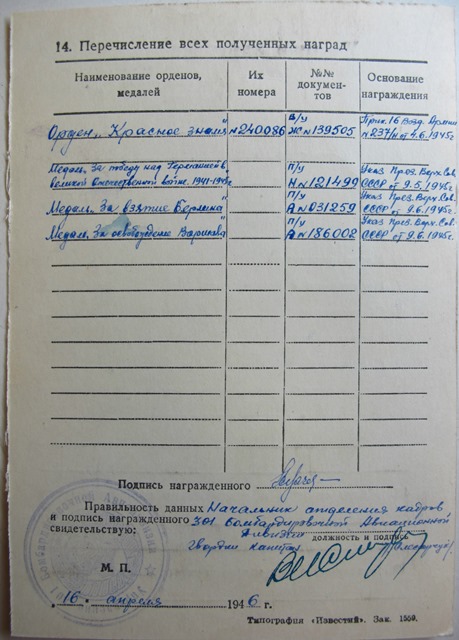 14. Перечисление всех полученных наград
Наименование орденов, медалей
Их номера
№№ документов
Основание награждения
Орден „Красное знамя" №240086 в/у Ж№139505 Прик. 16 Возд. Армии №237/н от 4.6.1945г.
Медаль „За победу над Германией в Великой Отечественной войне 1941-1945г п/у Н№121499 Указ През. Верх. Сов. СССР от 9.5.1945г.
Медаль „За взятие Берлина" п/у А№031259 Указ През. Верх. Сов. СССР от 9.6.1945г.
Медаль „За освобождение Варшавы" п/у А№186002 Указ През. Верх. Сов. СССР от 9.6.1945г.
Подпись награжденного
Правильность данных Начальник отделения кадров
и подпись награжденного 301 Бомбардировочной Авиационной
свидетельствую: Дивизии
должность и подпись
Гвардии капитан
М. П.
„16" апреля 1946 г.
Типография «Известий». Зак. 1559.